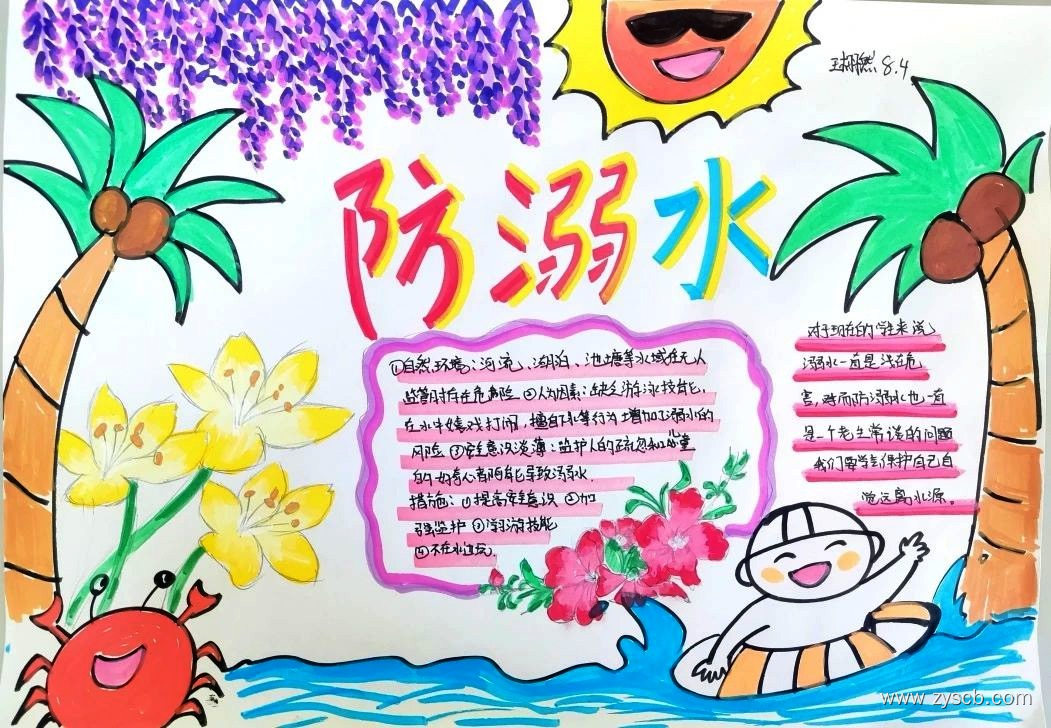 8.4
防溺水
①自然环境：河流、湖泊、池塘等水域在无人
监管时存在危险 ②人为因素：缺乏游泳技能，
在水中嬉戏打闹，擅自下水等行为增加了溺水的
风险 ③安全意识淡薄：监护人的疏忽和儿童
的好奇都可能导致溺水．
措施：①提高安全意识 ②加
强监护 ③学习游技能
④不在水边玩．
对于现在的学生来说
溺水一直是潜在危
害，时而防溺水也一直
是一个老生常谈的问题
我们要学会保护自己自
觉远离水源。
www.zyscb.com